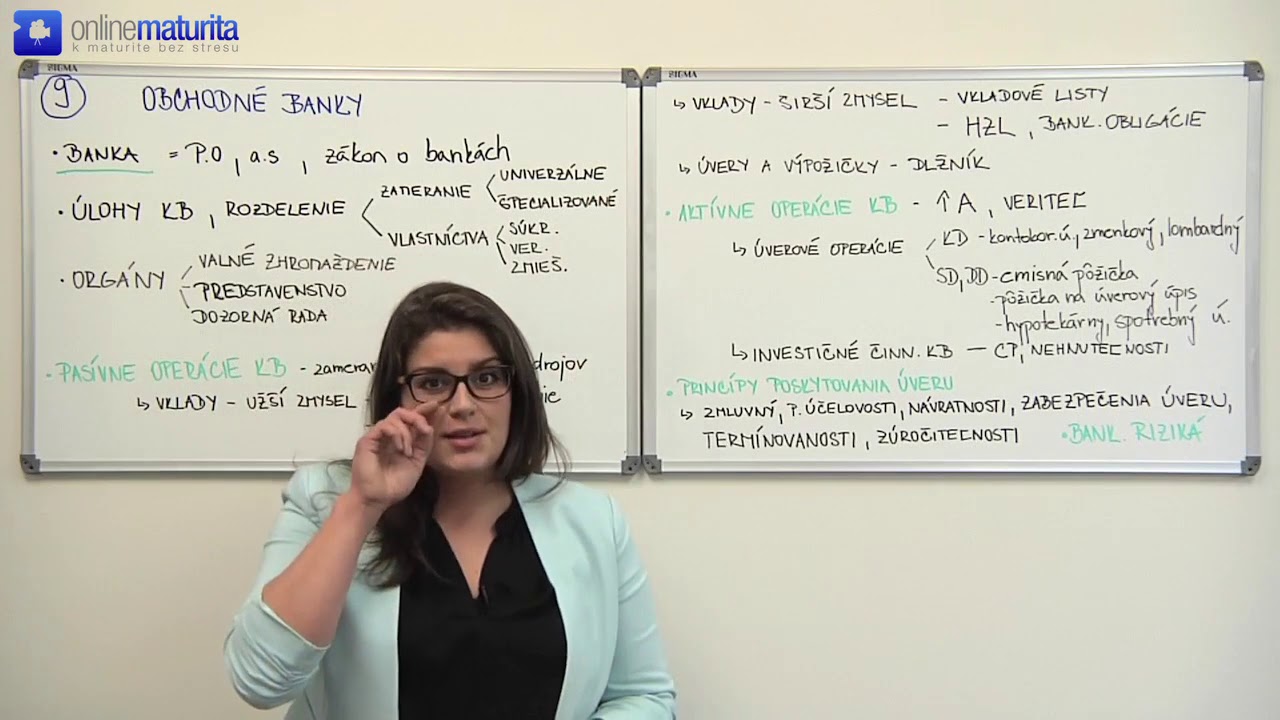 onlinematurita
k maturite bez stresu
SIGMA
9 OBCHODNÉ BANKY
• BANKA = P.O, a.s, zákon o bankách
• ÚLOHY KB, ROZDELENIE
ZAMERANIE
UNIVERZÁLNE
ŠPECIALIZOVANÉ
VLASTNÍCTVA
SÚKR.
VER.
ZMIEŠ.
• ORGÁNY
VALNÉ ZHROMAŽDENIE
PREDSTAVENSTVO
DOZORNÁ RADA
• PASÍVNE OPERÁCIE KB - zameran
↳ VKLADY - UŽŠÍ ZMYSEL -
SIGMA
↳ VKLADY - ŠIRŠÍ ZMYSEL - VKLADOVÉ LISTY
- HZL, BANK. OBLIGÁCIE
↳ ÚVERY A VÝPOŽIČKY - DLŽNÍK
• AKTÍVNE OPERÁCIE KB - ↑A, VERITEĽ
↳ ÚVEROVÉ OPERÁCIE
KD - kontokor.ú., zmenkový, lombardný
SD, DD - emisná pôžička
- pôžička na úverový úpis
- hypotekárny, spotrebný ú.
↳ INVESTIČNÉ ČINN. KB — CP, NEHNUTEĽNOSTI
• PRINCÍPY POSKYTOVANIA ÚVERU
↳ ZMLUVNÝ, P. ÚČELOVOSTI, NÁVRATNOSTI, ZABEZPEČENIA ÚVERU,
TERMÍNOVANOSTI, ZÚROČITEĽNOSTI • BANK. RIZIKÁ